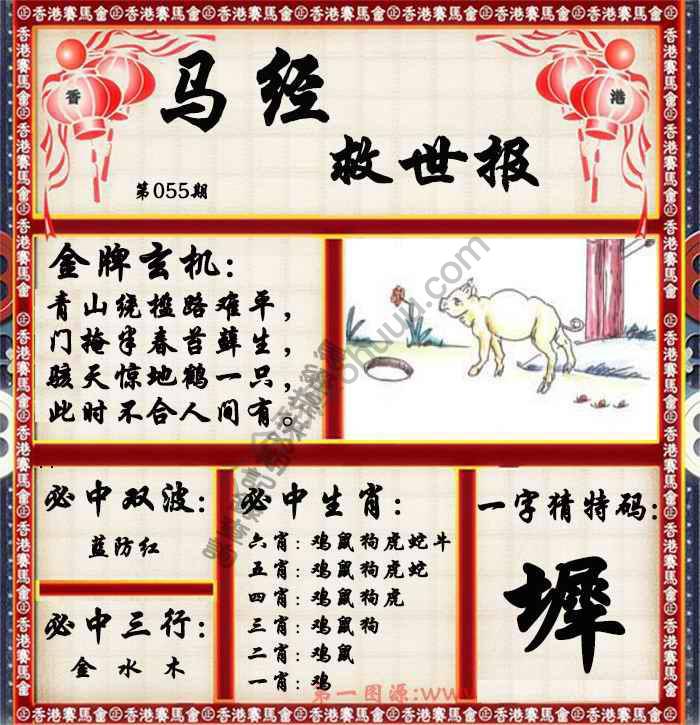 香港賽馬會
香 港
马经
救世报
第055期
金牌玄机:
青山绕槛路难平,
门掩半春苔藓生,
骇天惊地鹤一只,
此时不合人间有。
必中双波:
蓝防红
必中三行:
金 水 木
必中生肖:
六肖: 鸡鼠狗虎蛇牛
五肖: 鸡鼠狗虎蛇
四肖: 鸡鼠狗虎
三肖: 鸡鼠狗
二肖: 鸡鼠
一肖: 鸡
一字猜特码:
墀
第一图源:www